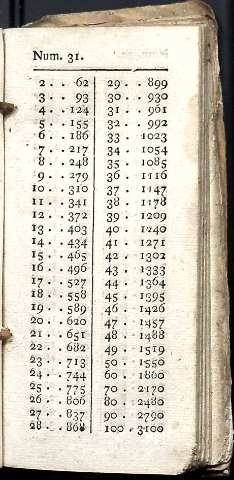 Num. 31.
2 . . 62 29 . . 899
3 . . 93 30 . . 930
4 . . 124 31 . . 961
5 . . 155 32 . . 992
6 . . 186 33 . 1023
7 . . 217 34 . 1054
8 . . 248 35 . 1085
9 . . 279 36 . 1116
10 . . 310 37 . 1147
11 . . 341 38 . 1178
12 . . 372 39 . 1209
13 . . 403 40 . 1240
14 . . 434 41 . 1271
15 . . 465 42 . 1302
16 . . 496 43 . 1333
17 . . 527 44 . 1364
18 . . 558 45 . 1395
19 . . 589 46 . 1426
20 . . 620 47 . 1457
21 . . 651 48 . 1488
22 . . 682 49 . 1519
23 . . 713 50 . 1550
24 . . 744 60 . 1860
25 . . 775 70 . 2170
26 . . 806 80 . 2480
27 . . 837 90 . 2790
28 . . 868 100 . 3100